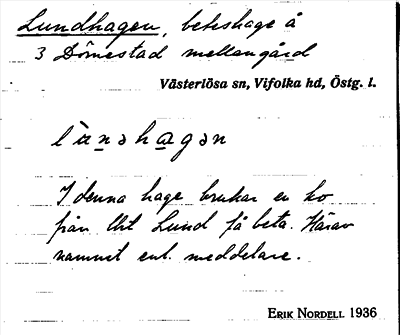 Lundhagen, beteshage å
3 Dömestad mellangård
Västerlösa sn, Vifolka hd, Östg. l.
I denna hage brukar en ko
från lht Lund få beta. Härav
namnet enl. meddelare.
Erik Nordell 1936